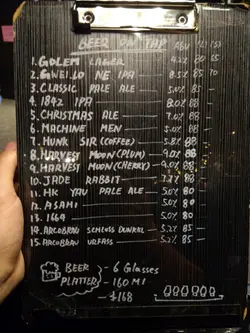 BEER ON TAP ABV (L) (S)
1. GOLEM LAGER 4.2% 80 65
2. GWEILO NE IPA 8.5% 85 70
3. CLASSIC PALE ALE 5.0% 85
4. 1842 IPA 8.0% 88
5. CHRISTMAS ALE 7.0% 88
6. MACHINE MEN 5.0% 88
7. HUNK SIR (COFFEE) 5.8% 88
8. HARVEST MOON (PLUM) 9.0% 88
9. HARVEST MOON (CHERRY) 9.0% 88
10. JADE RABBIT 88
11. HK YAU PALE ALE 5.0% 80
12. ASAMI 5.0% 80
13. 1664 5.0% 80
14. ARCOBRAU SCHLOSS DUNKEL 5.2% 85
15. ARCOBRAU URFASS 5.2% 85
BEER PLATTER
- 6 Glasses
- 160 Ml
- $168